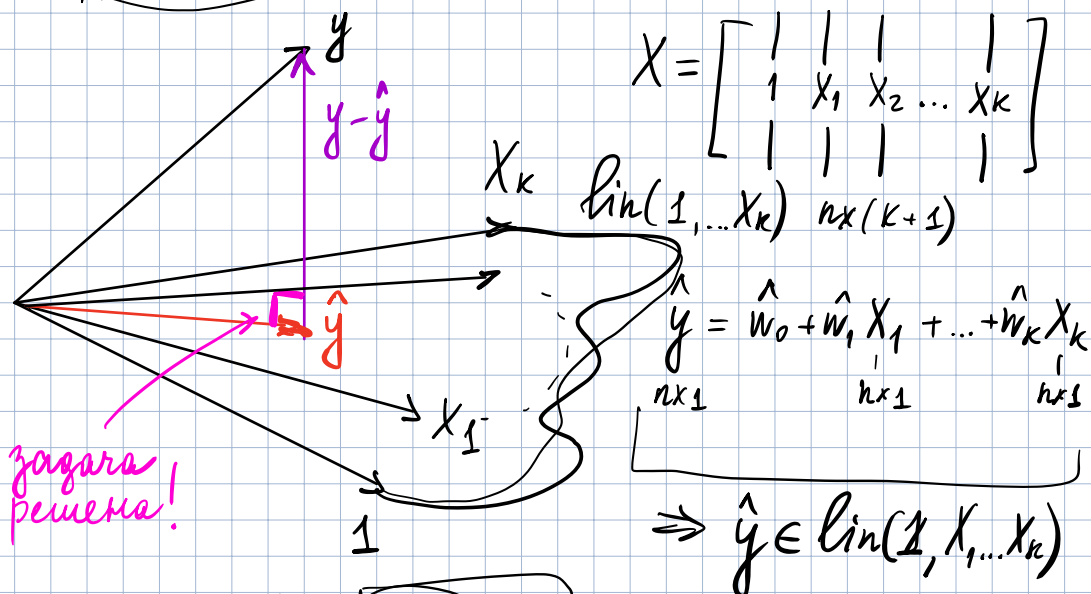 y
y - ŷ
X = [ 1 X₁ X₂ ... Xₖ ]
Xₖ
lin(1, ... Xₖ) n×(k+1)
ŷ
ŷ = ŵ₀ + ŵ₁ X₁ + ... + ŵₖ Xₖ
n×1 n×1 n×1
X₁
задача
решена!
1
⇒ ŷ ∈ lin(1, X₁...Xₖ)